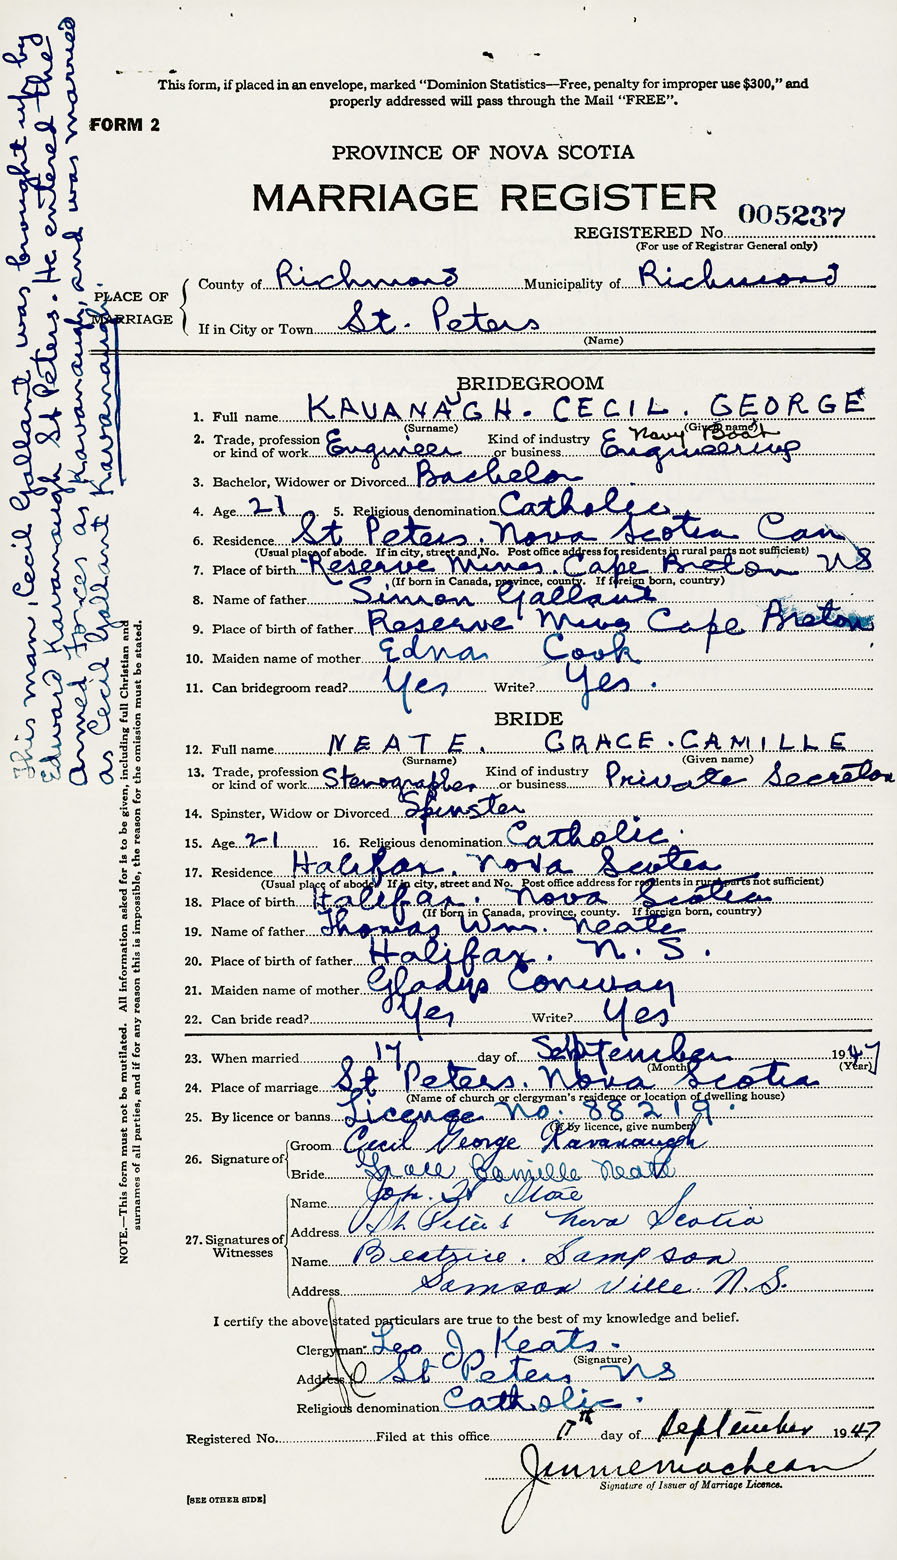 This form, if placed in an envelope, marked “Dominion Statistics—Free, penalty for improper use $300,” and
properly addressed will pass through the Mail “FREE”.
FORM 2
PROVINCE OF NOVA SCOTIA
MARRIAGE REGISTER
005237
REGISTERED No.
(For use of Registrar General only)
PLACE OF MARRIAGE
County of Richmond Municipality of Richmond
If in City or Town St. Peters
(Name)
This man, Cecil Gallant was brought up by
Edward Kavanaugh St Peters. He entered the
Armed Forces as Kavanaugh, and was married
as Cecil Gallant Kavanaugh.
NOTE.—This form must not be mutilated. All information asked for is to be given, including full Christian and
surnames of all parties, and if for any reason this is impossible, the reason for the omission must be stated.
BRIDEGROOM
1. Full name KAVANAUGH. CECIL. GEORGE
(Surname) (Given name)
2. Trade, profession or kind of work Engineer Kind of industry or business Navy Boat Engineering
3. Bachelor, Widower or Divorced Bachelor
4. Age 21 5. Religious denomination Catholic
6. Residence St Peters. Nova Scotia Can
(Usual place of abode. If in city, street and No. Post office address for residents in rural parts not sufficient)
7. Place of birth Reserve Mines. Cape Breton NS
(If born in Canada, province, county. If foreign born, country)
8. Name of father Simon Gallant
9. Place of birth of father Reserve Mines Cape Breton
10. Maiden name of mother Edna Cook
11. Can bridegroom read? Yes Write? Yes.
BRIDE
12. Full name NEATE. GRACE. CAMILLE
(Surname) (Given name)
13. Trade, profession or kind of work Stenographer Kind of industry or business Private Secretary
14. Spinster, Widow or Divorced Spinster
15. Age 21 16. Religious denomination Catholic.
17. Residence Halifax. Nova Scotia
(Usual place of abode. If in city, street and No. Post office address for residents in rural parts not sufficient)
18. Place of birth Halifax. Nova Scotia
(If born in Canada, province, county. If foreign born, country)
19. Name of father Thomas Wm. Neate
20. Place of birth of father Halifax. N. S.
21. Maiden name of mother Gladys Conway
22. Can bride read? Yes Write? Yes
23. When married 17 day of September 1947
(Month) (Year)
24. Place of marriage St Peters. Nova Scotia
(Name of church or clergyman's residence or location of dwelling house)
25. By licence or banns Licence No. 88219.
(If by licence, give number)
26. Signature of Groom Cecil George Kavanaugh
Bride Grace Camille Neate
27. Signatures of Witnesses
Name
Address St Peters Nova Scotia
Name Beatrice. Sampson
Address Samson Ville N.S.
I certify the above stated particulars are true to the best of my knowledge and belief.
Clergyman Leo J. Keats.
(Signature)
Address St Peters NS
Religious denomination Catholic.
Registered No. Filed at this office 17th day of September 1947
Signature of Issuer of Marriage Licence.
[SEE OTHER SIDE]